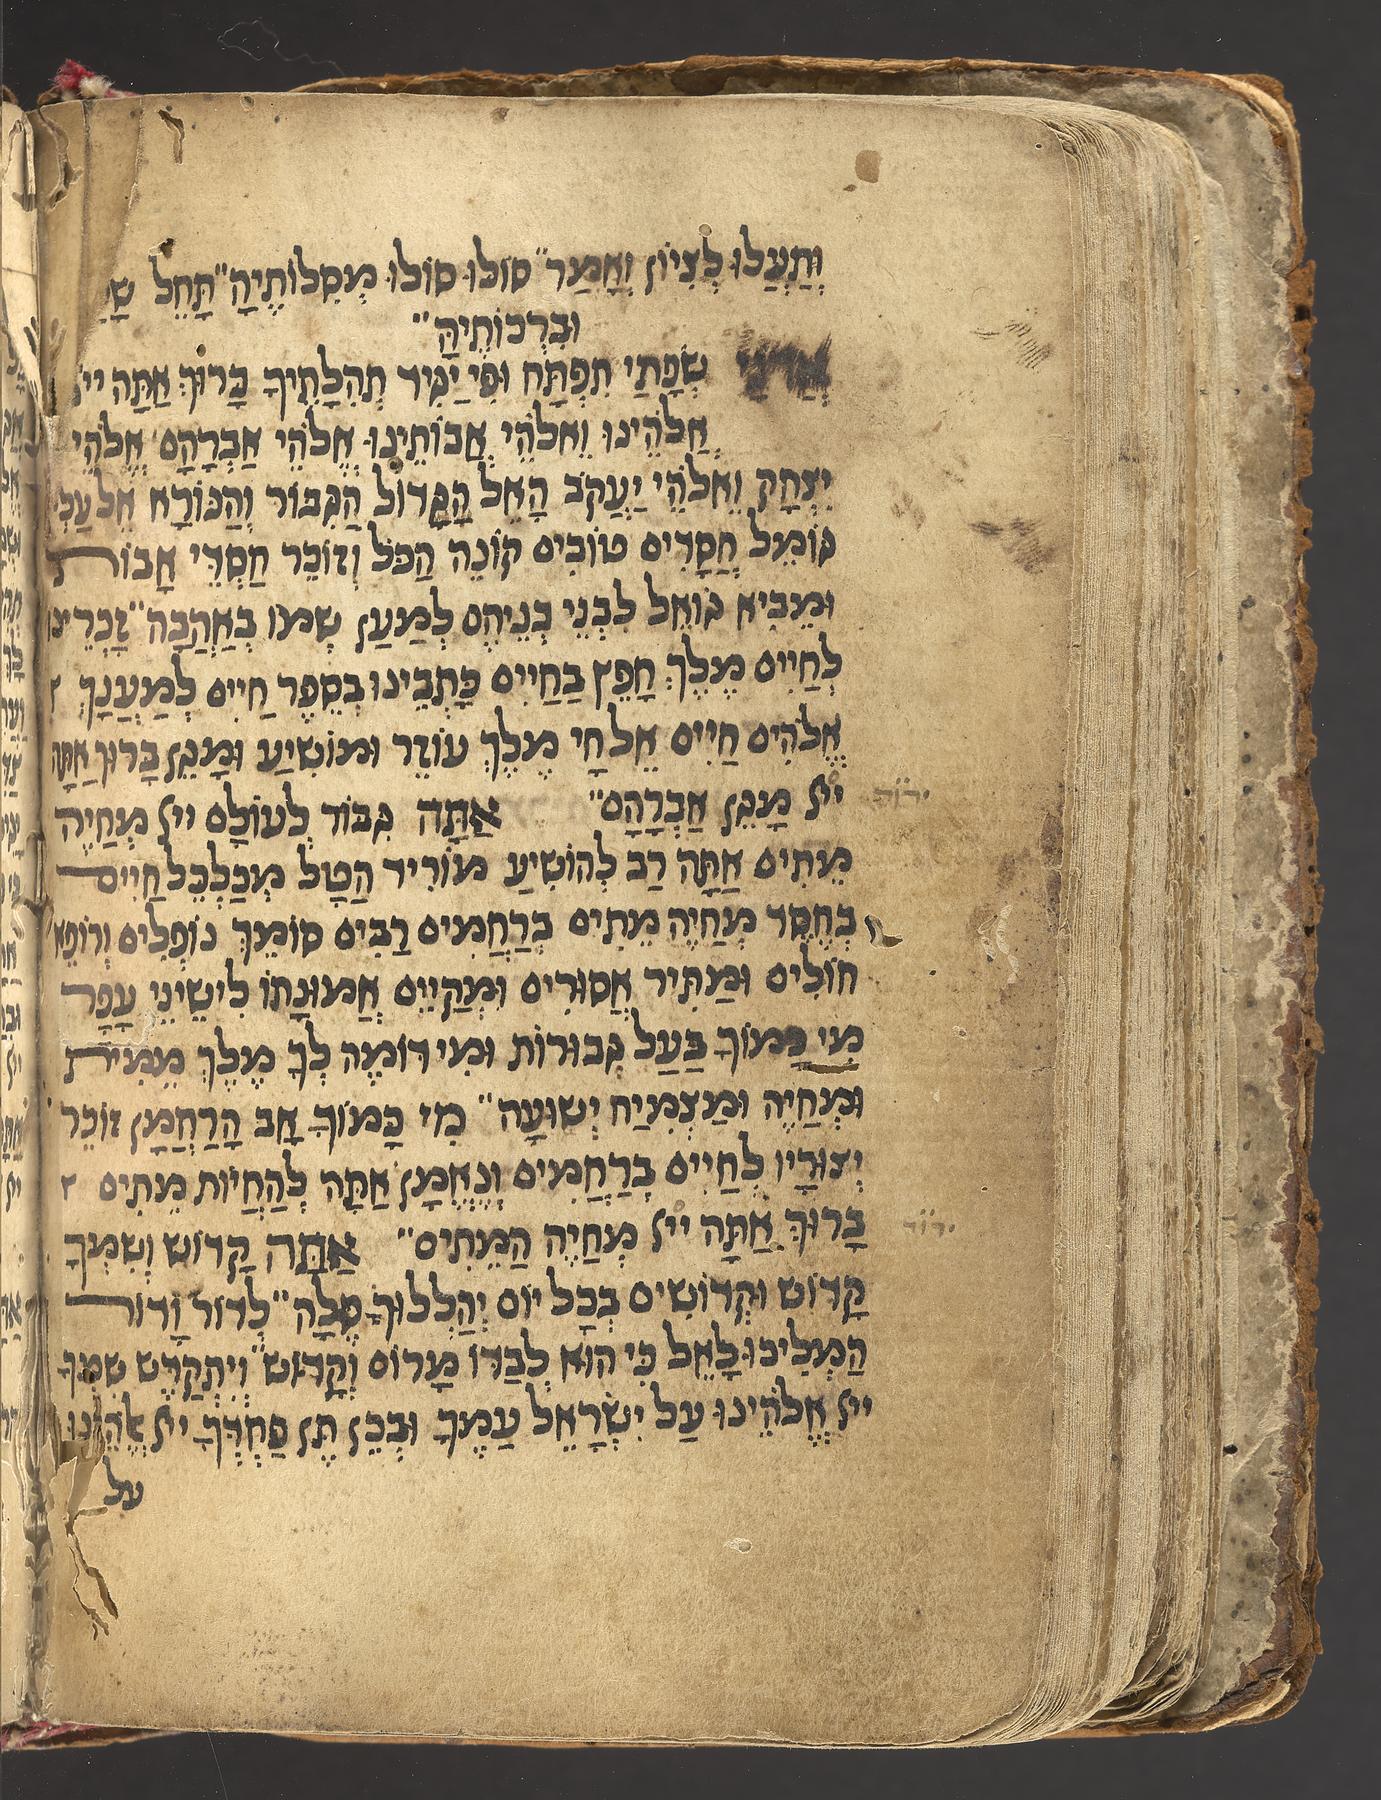 וְתַעֲלוּ לְצִיּוֹן וְאָמַר״ סוֹלּוּ סוֹלּוּ מְסִלּוֹתֶיהָ״ תָּחֵל
וּבְרְכוֹתֶיהָ״
אֲדֹנָי שְׂפָתַי תִּפְתָּח וּפִי יַגִּיד תְּהִלָּתֶיךָ בָּרוּךְ אַתָּה ייי
אֱלֹהֵינוּ וֵאלֹהֵי אֲבוֹתֵינוּ אֱלֹהֵי אַבְרָהָם אֱלֹהֵי
יִצְחָק וֵאלֹהֵי יַעֲקֹב הָאֵל הַגָּדוֹל הַגִּבּוֹר וְהַנּוֹרָא אֵל עֶלְי
גּוֹמֵל חֲסָדִים טוֹבִים קוֹנֵה הַכֹּל וְזוֹכֵר חַסְדֵי אָבוֹת
וּמֵבִיא גוֹאֵל לִבְנֵי בְנֵיהֶם לְמַעַן שְׁמוֹ בְּאַהֲבָה״ זָכְרֵינוּ
לְחַיִּים מֶלֶךְ חָפֵץ בַּחַיִּים כָּתְבֵינוּ בְּסֵפֶר חַיִּים לְמַעֲנָךְ
אֱלֹהִים חַיִּים אֵל חָי מֶלֶךְ עוֹזֵר וּמוֹשִׁיעַ וּמָגֵן בָּרוּךְ אַתָּה
ייי מָגֵן אַבְרָהָם״ אַתָּה גִּבּוֹר לְעוֹלָם ייי מְחַיֶּה
מֵתִים אַתָּה רַב לְהוֹשִׁיעַ מוֹרִיד הַטָּל מְכַלְכֵּל חַיִּים
בְּחֶסֶד מְחַיֶּה מֵתִים בְּרַחֲמִים רַבִּים סוֹמֵךְ נוֹפְלִים וְרוֹפֵא
חוֹלִים וּמַתִּיר אֲסוּרִים וּמְקַיֵּים אֱמוּנָתוֹ לִישֵׁינֵי עָפָר
מִי כָּמוֹךָ בַּעַל גְּבוּרוֹת וּמִי דוֹמֶה לְךָ מֶלֶךְ מֵמִית
וּמְחַיֶּה וּמַצְמִיחַ יְשׁוּעָה״ מִי כָּמוֹךָ אָב הָרַחֲמָן זוֹכֵר
יְצוּרָיו לְחַיִּים בְּרַחֲמִים וְנֶאֱמָן אַתָּה לְהַחֲיוֹת מֵתִים
בָּרוּךְ אַתָּה ייי מְחַיֶּה הַמֵּתִים״ אַתָּה קָדוֹשׁ וְשִׁמְךָ
קָדוֹשׁ וּקְדוֹשִׁים בְּכָל יוֹם יְהַלְלוּךָ סֶּלָה״ לְדוֹר וָדוֹר
הַמְלִיכוּ לָאֵל כִּי הוּא לְבַדּוֹ מָרוֹם וְקָדוֹשׁ״ וְיִתְקַדֵּשׁ שִׁמְךָ
ייי אֱלֹהֵינוּ עַל יִשְׂרָאֵל עַמֶּךָ וּבְכֵן תֵּן פַּחְדְּךָ ייי אֱלֹהֵינוּ
על